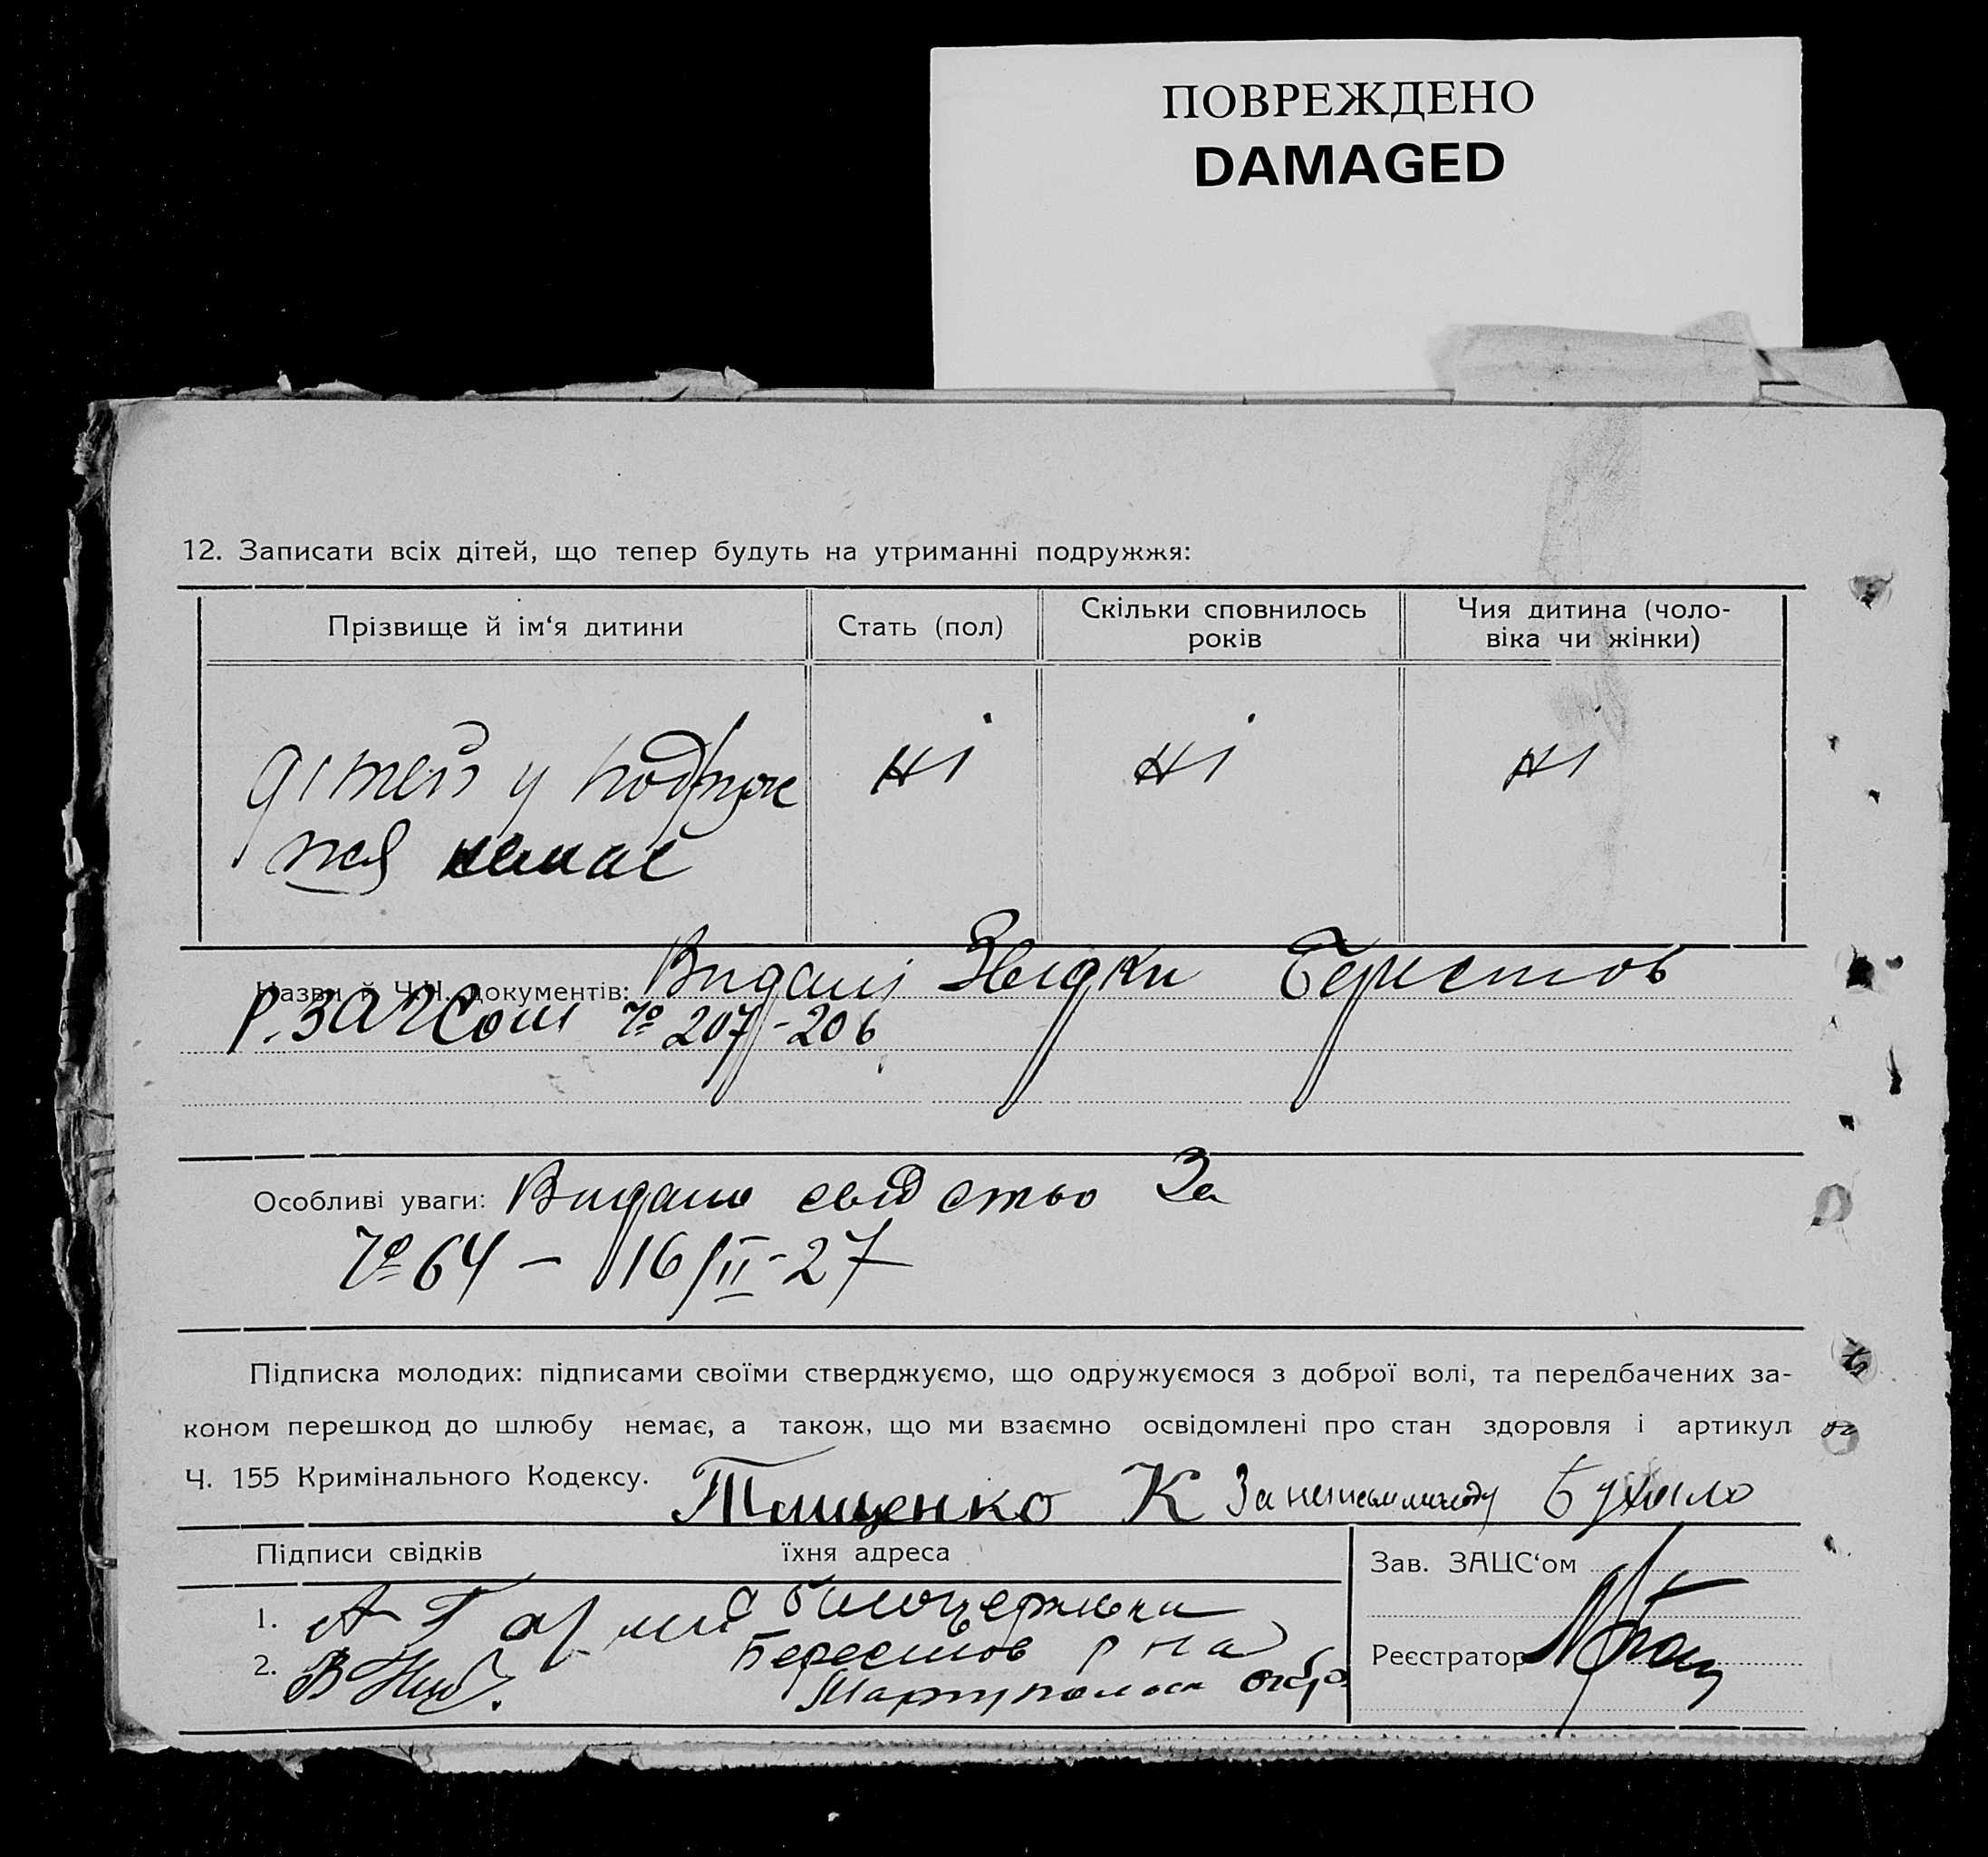 ПОВРЕЖДЕНО
DAMAGED
12. Записати всіх дітей, що тепер будуть на утриманні подружжя:
Прізвище й ім‘я дитини
Стать (пол)
Скільки сповнилось
років
Чия дитина (чоло-
віка чи жінки)
дітей у подруж
жя немає
ні
ні
ні
Назви й Ч.Ч. документів: Видані Звідки Берестов
Р. ЗАГСом № 207-206
Особливі уваги: Видано свідство За
№ 64 — 16/II-27
Підписка молодих: підписами своїми стверджуємо, що одружуємося з доброї волі, та передбачених за-
коном перешкод до шлюбу немає, а також, що ми взаємно освідомлені про стан здоровля і артикул
Ч. 155 Кримінального Кодексу. Тищенко К За
Підписи свідків
їхня адреса
Зав. ЗАЦС‘ом
1. А
2. В
Берестов р на
Маріупольск окр.
Реєстратор